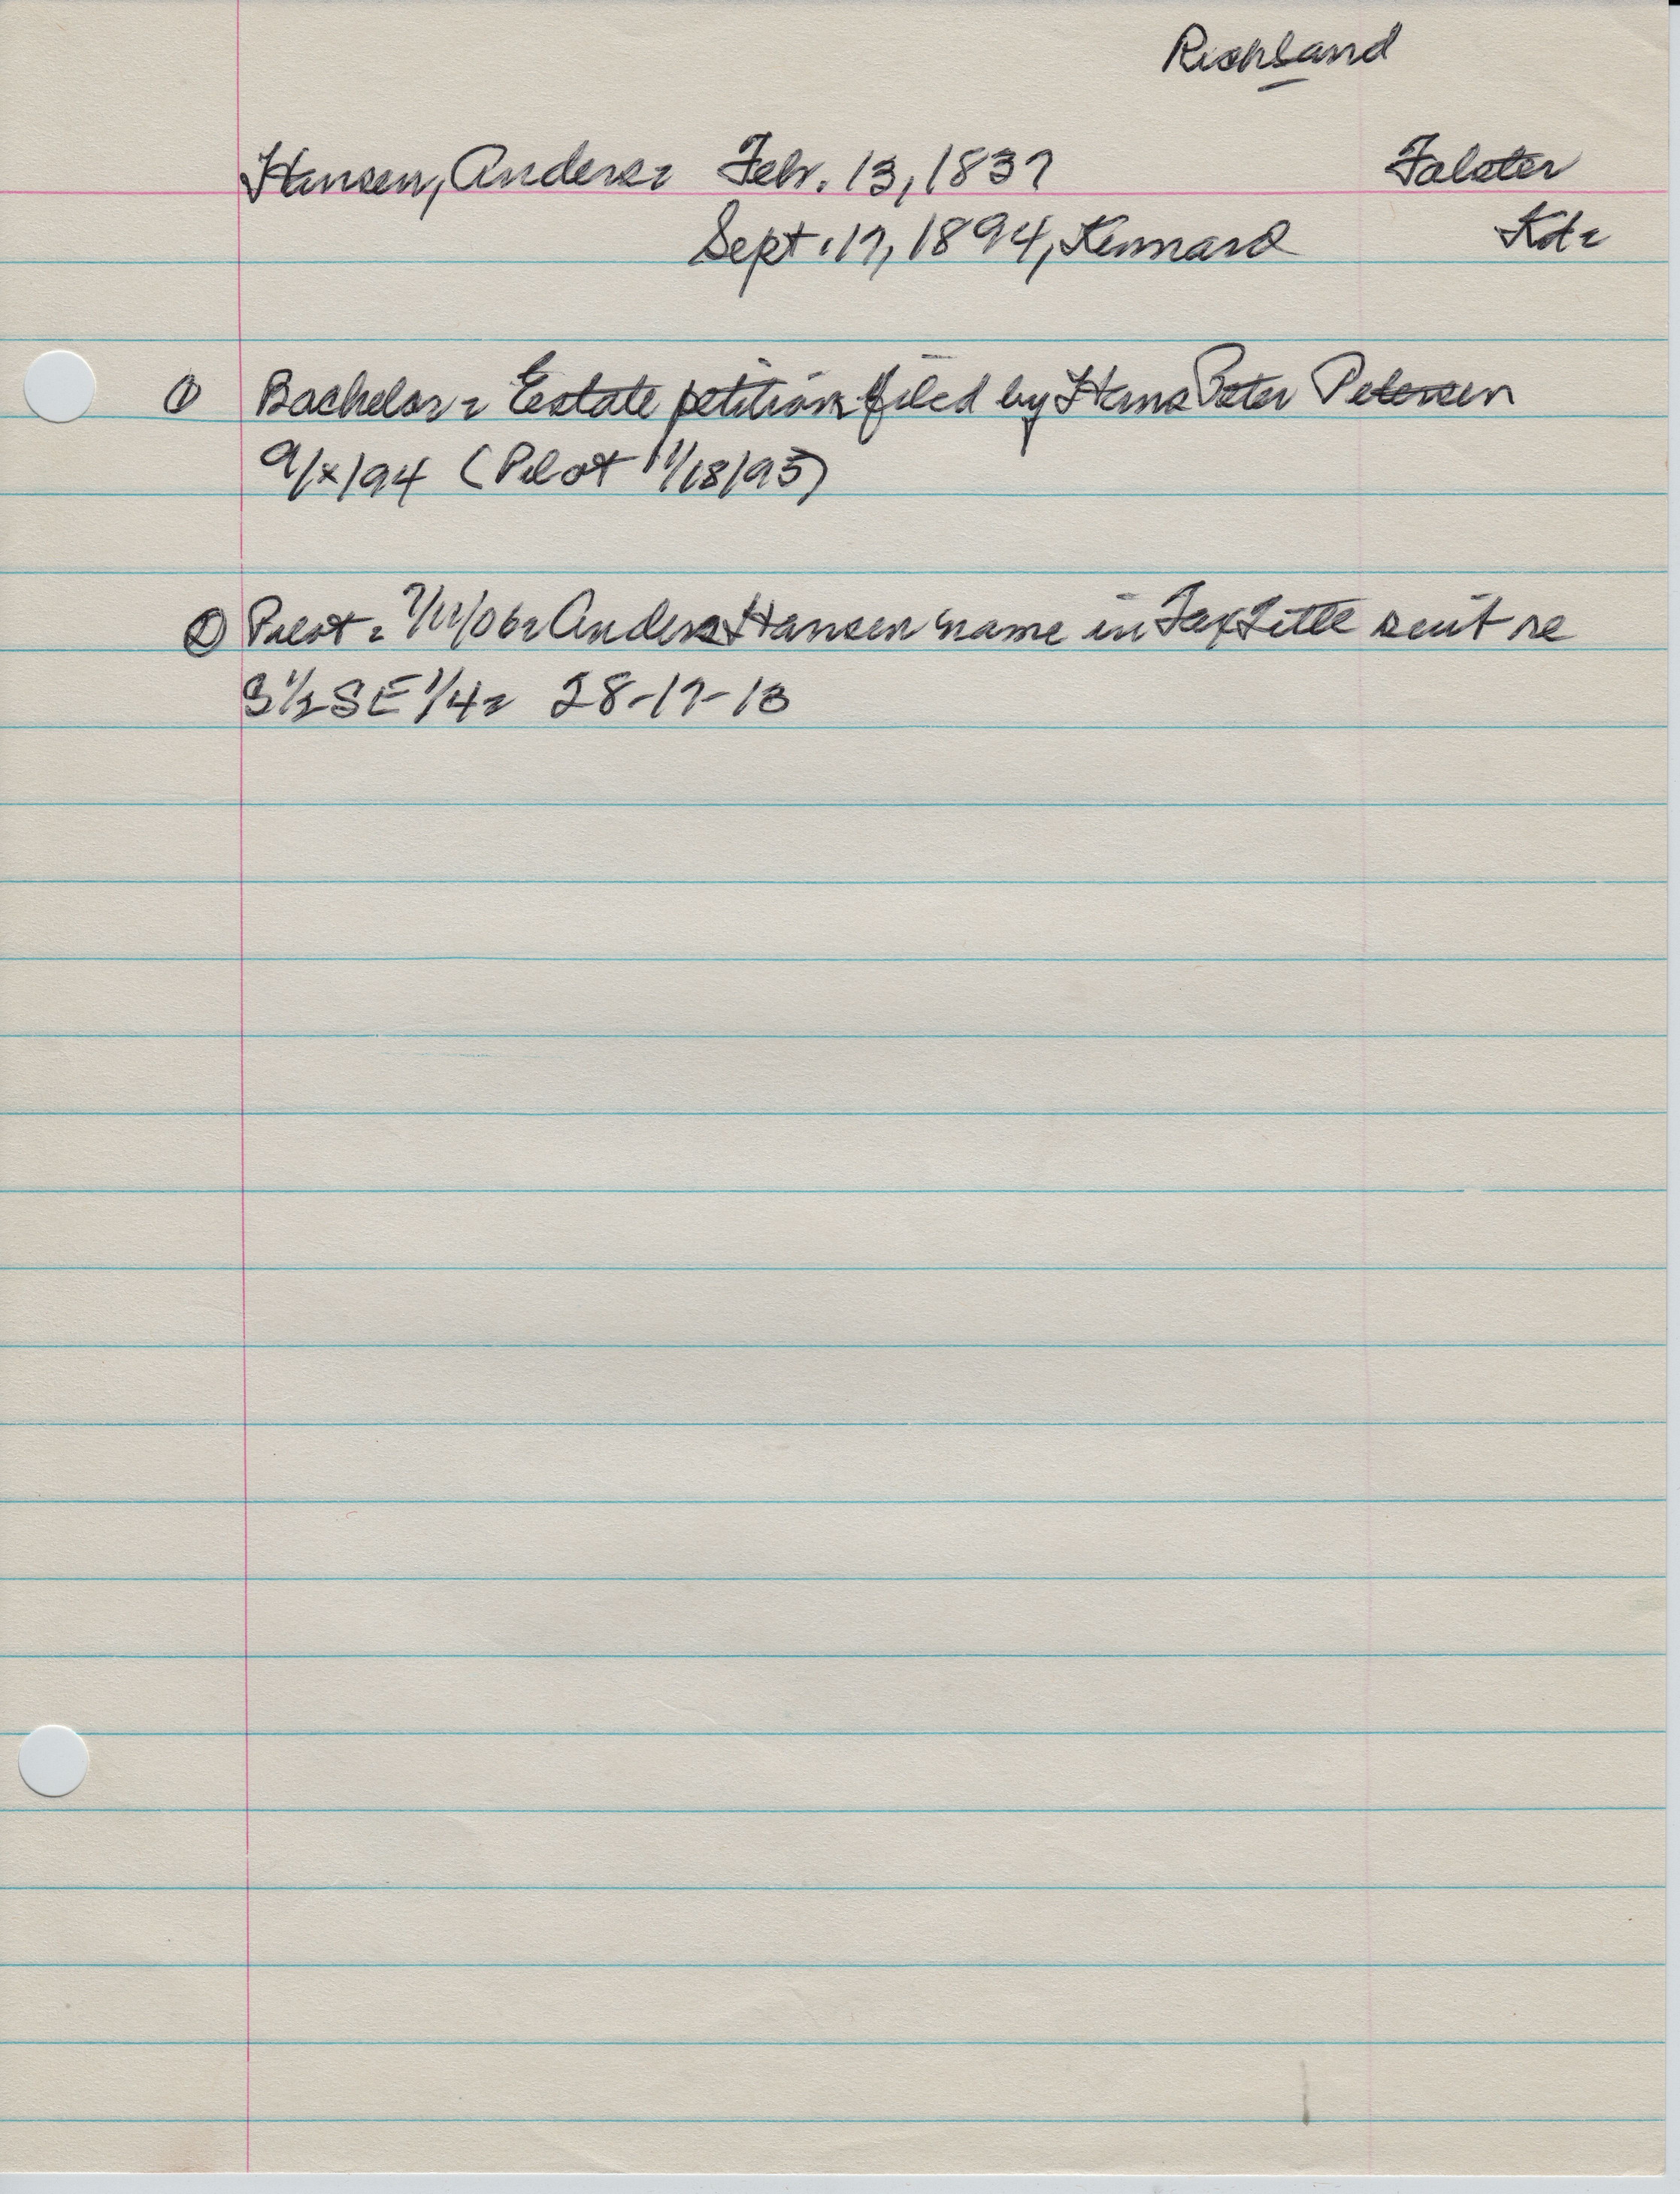 Richland
Hansen, Anders = Febr. 13, 1837 Falster
Sept. 17, 1894, Kennard Kd =
① Bachelor = Estate petition filed by Hans Peter Petersen
9/x/94 (Pilot 11/18/95)
② Pilot = 7/11/06 = Anders Hansen name in Tax Title suit re
S 1/2 SE 1/4 = 28-17-10